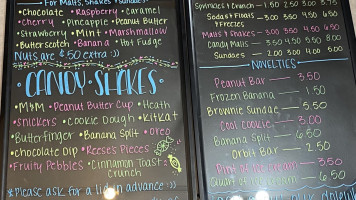 For Malts, Shakes, Sundaes
• Chocolate • Raspberry • Caramel
• Cherry • Pineapple • Peanut Butter
• Strawberry • Mint • Marshmallow
• Butterscotch • Banana • Hot Fudge
Nuts are $ .50 extra :)
• CANDY SHAKES •
• M&M • Peanut Butter Cup • Heath
• Snickers • Cookie Dough • KitKat
• Butterfinger • Banana Split • Oreo
• Chocolate Dip • Reese's Pieces
• Fruity Pebbles • Cinnamon Toast
Crunch
* Please ask for a lid in advance :))
Sprinkles & Crunch
Sodas, Floats
& Freezes
Malts & Shakes
Candy Malts
Sundaes
NOVELTIES
Peanut Bar — 3.50
Frozen Banana — 1.50
Brownie Sundae — 5.50
Cool Cookie — 3.00
Banana Split — 6.50
Orbit Bar — 2.50
Pint of Ice Cream — 3.50
Quart of Ice Cream — 6.50